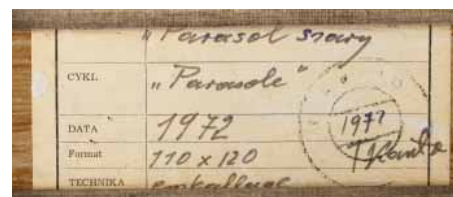 "Parasol szary
CYKL "Parasole"
DATA 1972
Format 110 x 120
TECHNIKA emballage
1972